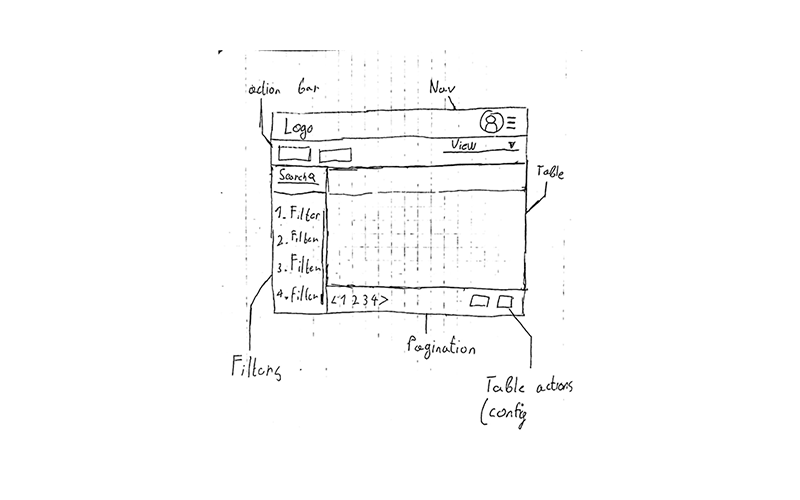 action bar
Nav
Logo
View
Search
Table
1. Filter
2. Filter
3. Filter
4. Filter
<1 2 3 4>
Pagination
Filters
Table actions
(config